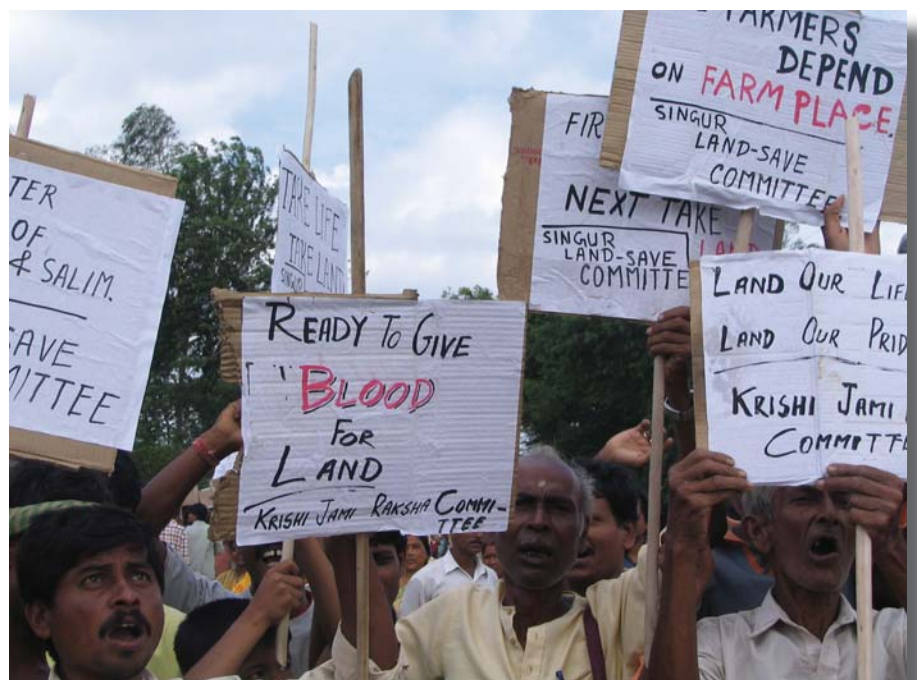 TER
OF
& SALIM.
SAVE
MITTEE
TAKE LIFE
TAKE LAND
READY TO GIVE
BLOOD
FOR
LAND
KRISHI JAMI RAKSHA COMMI-
TTEE
FIR
NEXT TAKE
LAND
SINGUR
LAND-SAVE
COMMITTE
FARMERS
DEPEND
ON FARM PLACE.
SINGUR
LAND-SAVE
COMMITTEE
LAND OUR LIF
LAND OUR PRID
KRISHI JAMI
COMMITTE